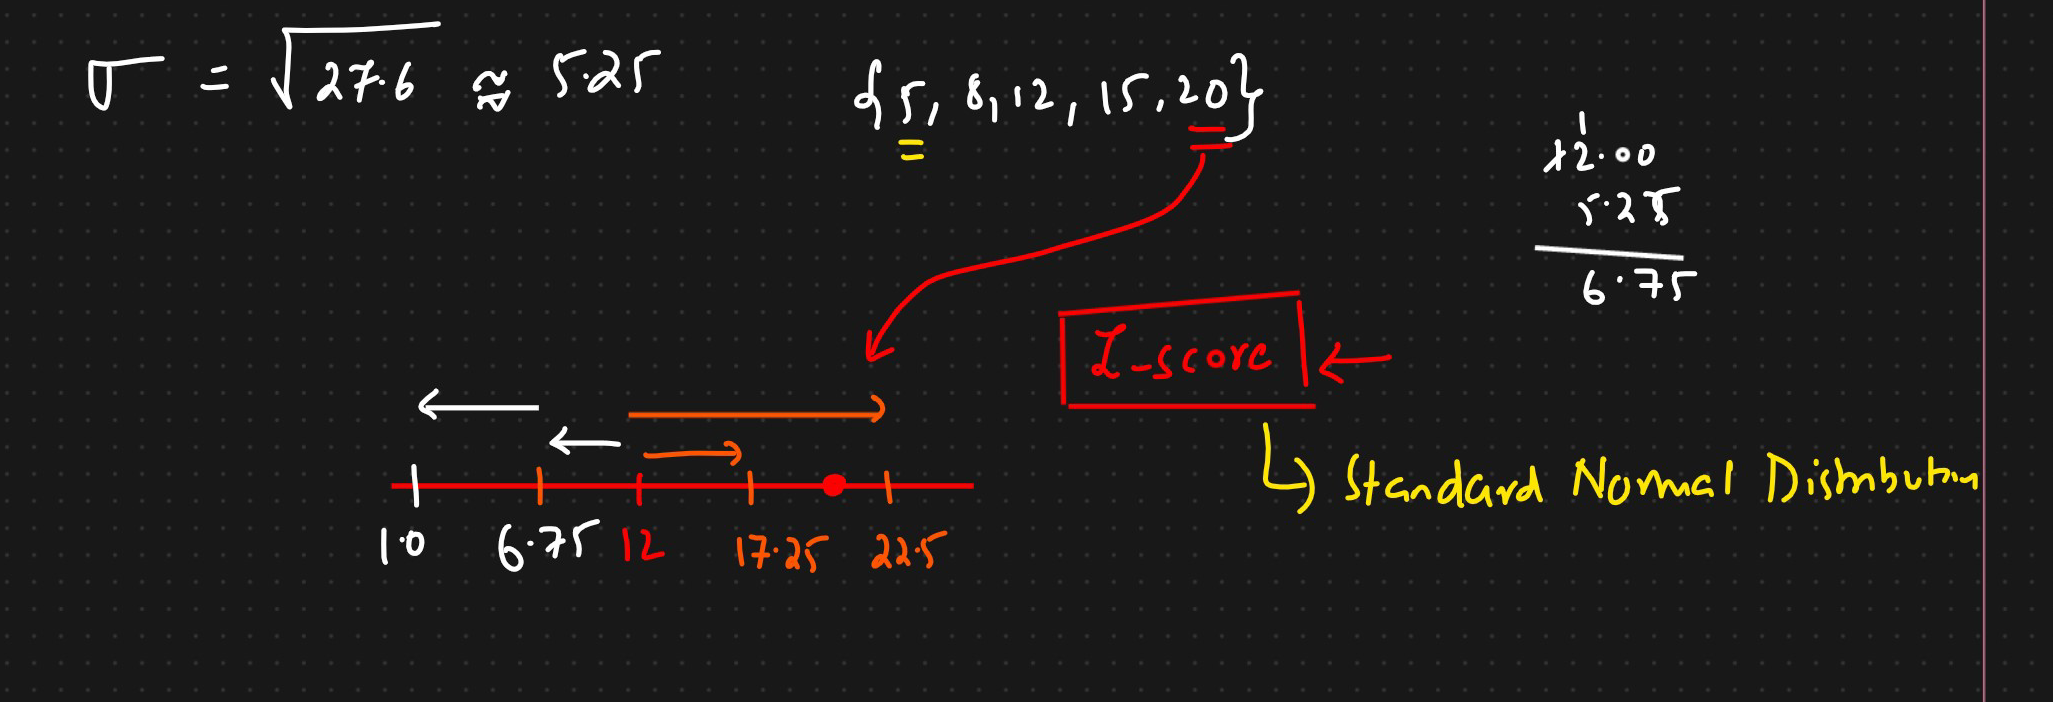 σ = √27.6 ≈ 5.25
{5, 8, 12, 15, 20}
1
12.00
5.25
6.75
Z-score
Standard Normal Distribution
1.0 6.75 12 17.25 22.5